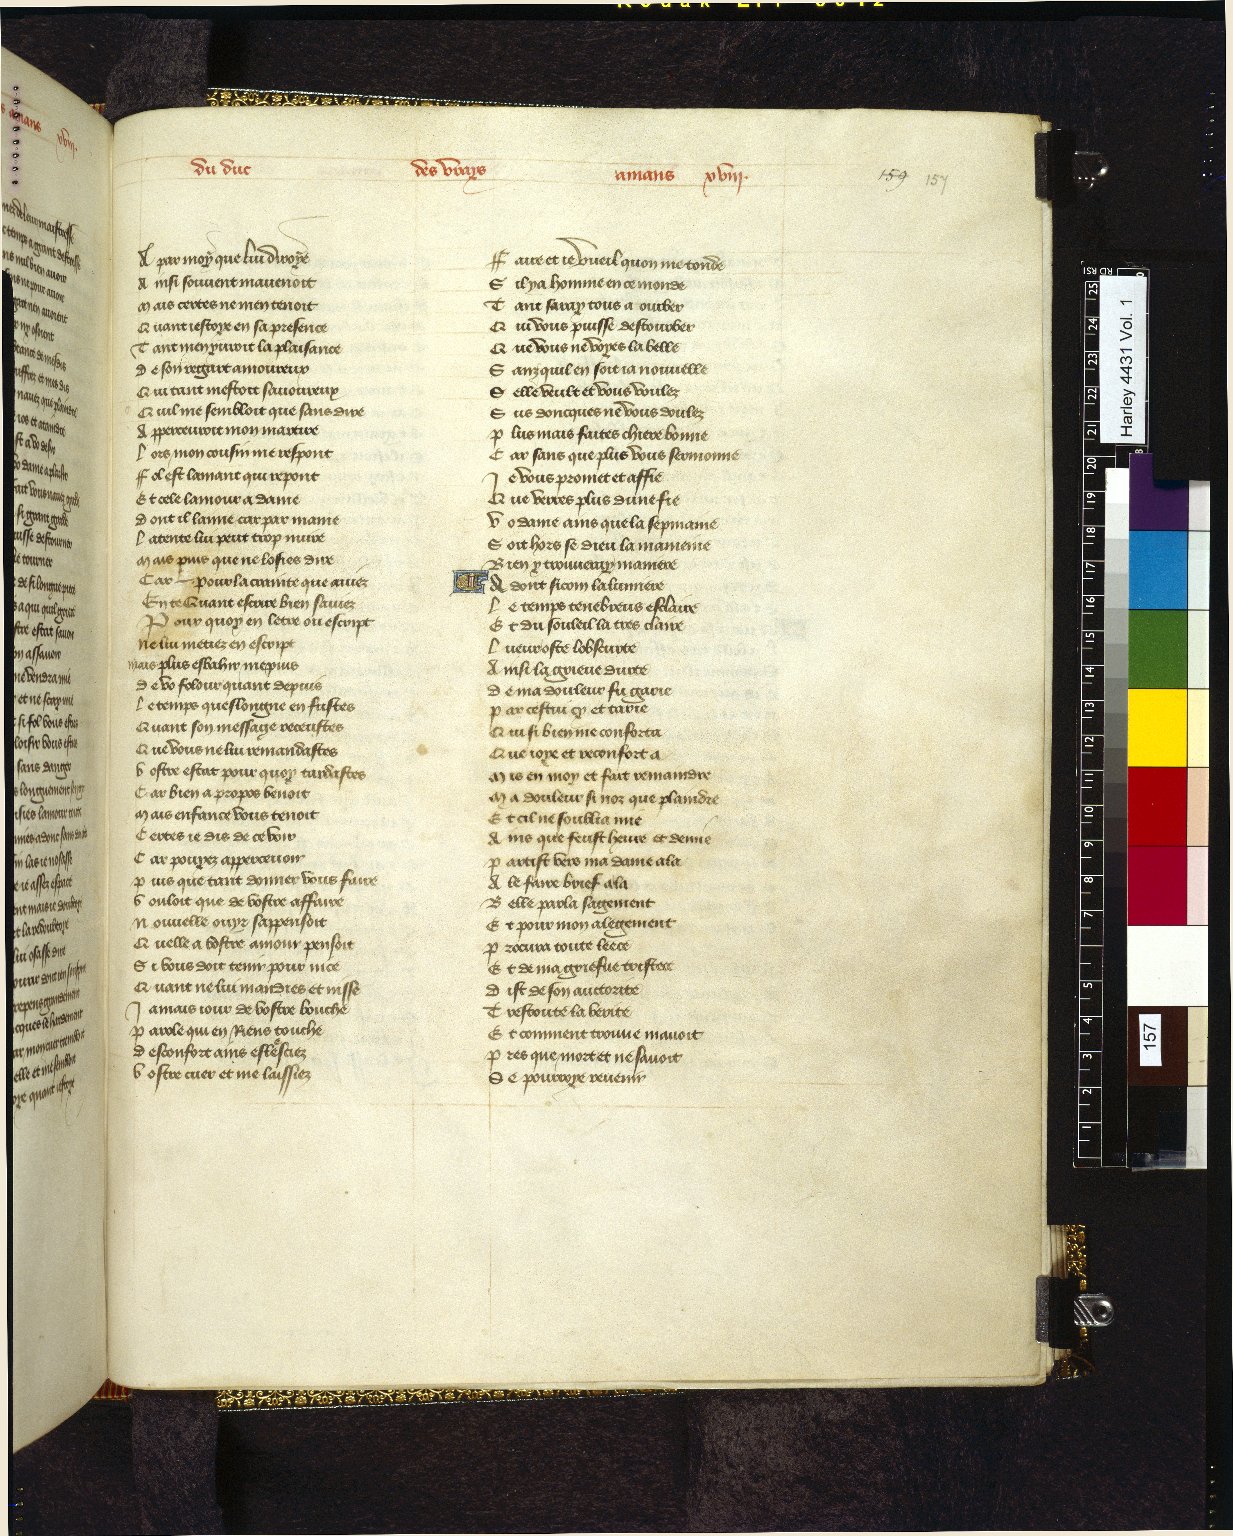 Kodak
du duc des vrays amans xviii.
159 157
A par moy que lui diroye
A insi souvent mavenoit
Mais certes ne men tenoit
Quant iestoye en sa presence
Tant menyuroit la plaisance
De son regart amoureux
Qui tant mestoit savoureux
Quil me sembloit que sans dire
Appercevroit mon martire
Lors mon cousin me respont
Fol est lamant qui repont
Et cele lamour a dame
Dont il lame car par mame
Latente lui peut trop nuire
Mais puis que ne losies dire
Car pour la crainte que aviez
Ente Quant escrire bien saviez
Pour quoy en letre ou escript
ne lui metiez en escript
mais plus esbahir me puis
De vo folour quant depuis
Le temps queslongne en fustes
Quant son message receustes
Que vous ne lui remandastes
Vostre estat pour quoy tardastes
Car bien a propos venoit
Mais enfance vous tenoit
Certes ie dis de ce voir
Car pouyez appercevoir
Puis que tant donner vous faire
Vouloit que de vostre affaire
Nouvelle ouyr sappensoit
Quelle a vostre amour pensoit
Si vous doit tenir pour nice
Quant ne lui mandies et nisse
Jamais iour de vostre bouche
Parole qui en riens touche
Desconfort ains eslesciez
Vostre cuer et me laissiez
Faire et ie vueil quon me tonde
Sil y a homme en ce monde
Tant saray tous a ourber
Qui vous puisse destourber
Que vous ne voyes la belle
Sanz quil en soit ia nouvelle
Selle veult et vous voulez
Sus doncques ne vous doulez
Plus mais faites chiere bonne
Car sans que plus vous sermonne
Je vous promet et affie
Que verres plus dune fie
Vo dame ains que la sepmaine
Soit hors se dieu la mameine
Bien y trouveray maniere
Adont si com la lumiere
Le temps tenebreus esclaire
Et du souleil la tres claire
Lueur oste lobscurte
Ainsi la grieve durte
De ma douleur fu garie
Par cestui cy et tarie
Qui si bien me conforta
Que ioye et reconfort a
Mis en moy et fait remaindre
Ma douleur si noz que plaindre
Et cil ne soublia mie
Ains que feust heure et demie
Partist vers ma dame ala
A le faire brief a la
Belle parla sagement
Et pour mon alegement
Procura toute leece
Et de ma griefve tristece
Dist de son auctorite
Trestoute la verite
Et comment trouve mavoit
Pres que mort et ne savoit
Se pourroye revenir
Harley 4431 Vol. 1
157